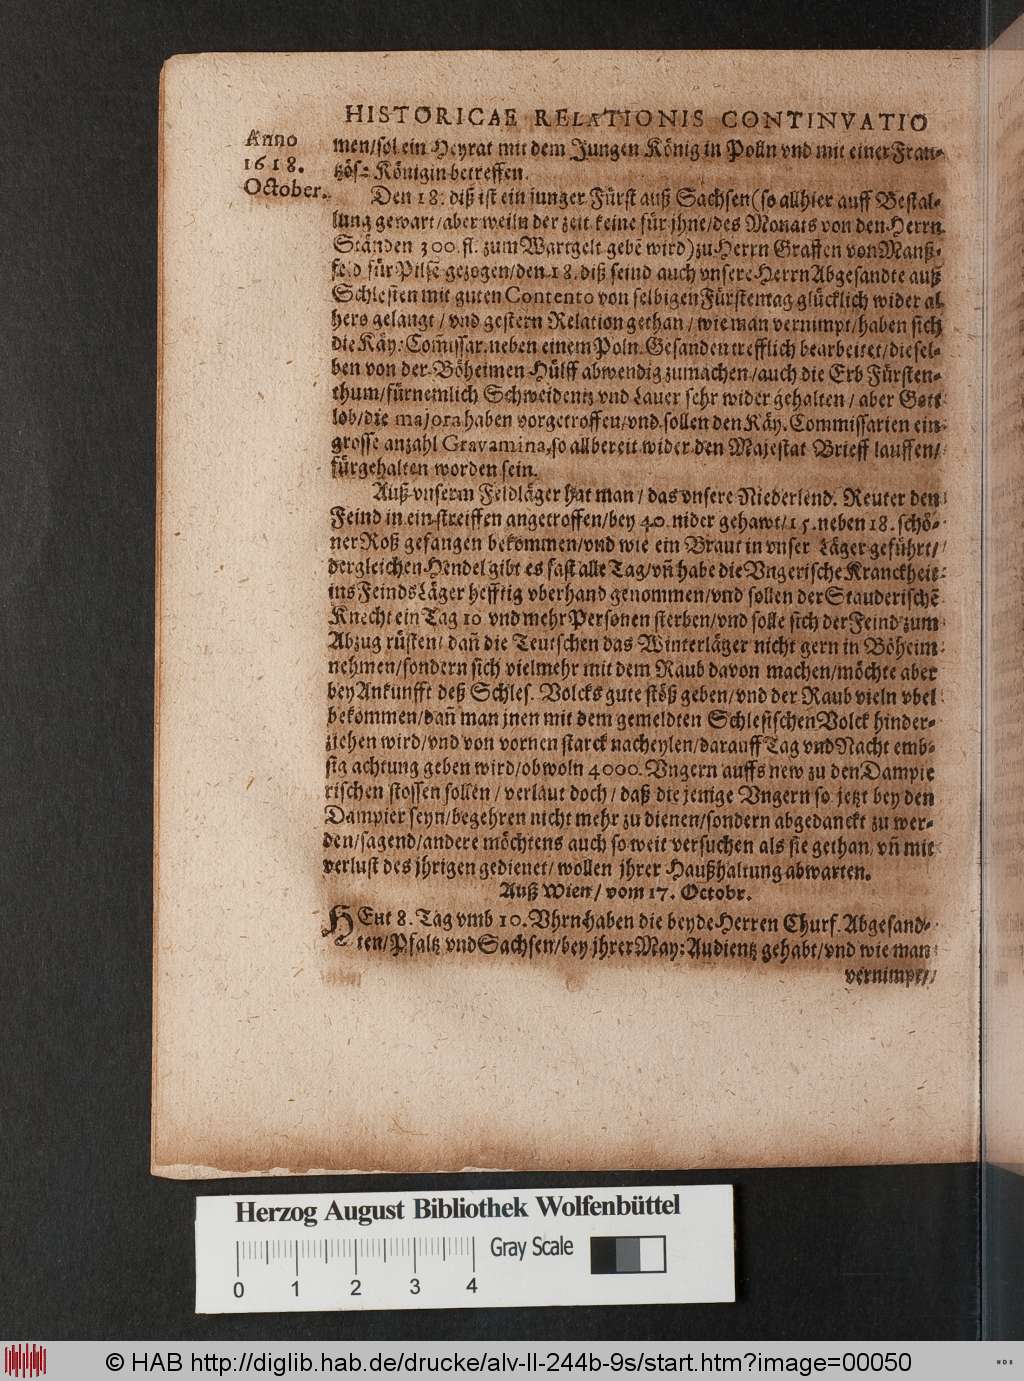 HISTORICAE RELATIONIS CONTINVATIO
Anno
1618.
October.
men/sol ein Heyrat mit dem Jungen König in Polln vnd mit einer Fran-
tzös: Königin betreffen.
Den 18. diß ist ein junger Fürst auß Sachsen (so allhier auff Bestal-
lung gewart/aber weiln der zeit keine für jhne/des Monats von den Herrn
Ständen 300. fl. zum Wartgelt gebē wird) zu Herrn Graffen von Manß-
feld für Pilsē gezogen/den 18. diß seind auch vnsere Herrn Abgesandte auß
Schlesien mit guten Contento von selbigen Fürstentag glücklich wider al
hero gelangt/vnd gestern Relation gethan/wie man vernimpt/haben sich
die Käy: Comissar. neben einem Poln. Gesanden trefflich bearbeitet/diesel-
ben von der Böheimen Hülff abwendig zumachen/auch die Erb Fürsten-
thum/fürnemlich Schweidentz vnd Lauer sehr wider gehalten/aber Gott
lob/die majora haben vorgetroffen/vnd sollen den Käy. Commissarien ein
grosse anzahl Gravamina, so allbereit wider den Majestat Brieff lauffen/
fürgehalten worden sein.
Auß vnserm Feldläger hat man/das vnsere Niederlend. Reuter den
Feind in ein streiffen angetroffen/bey 40. nider gehawt/15. neben 18. schö-
ner Roß gefangen bekommen/vnd wie ein Braut in vnser Läger geführt/
dergleichen Hendel gibt es fast alle Tag/vñ habe die Vngerische Kranckheit
ins Feinds Läger hefftig vberhand genommen/vnd sollen der Stauderischē
Knecht ein Tag 10 vnd mehr Personen sterben/vnd solle sich der Feind zum
Abzug rüsten/dañ die Teutschen das Winterläger nicht gern in Böheim
nehmen/sondern sich vielmehr mit dem Raub davon machen/möchte aber
bey Ankunfft deß Schles. Volcks gute stöß geben/vnd der Raub vieln vbel
bekommen/dañ man jnen mit dem gemeldten Schlesischen Volck hinder-
ziehen wird/vnd von vornen starck nacheylen/darauff Tag vnd Nacht emb-
sig achtung geben wird/obwoln 4000. Vngern auffs new zu den Dampie
rischen stossen sollen/verlaut doch/daß die jenige Vngern so jetzt bey den
Dampier seyn/begehren nicht mehr zu dienen/sondern abgedanckt zu wer-
den/sagend/andere möchtens auch so weit versuchen als sie gethan/vñ mit
verlust des jhrigen gedienet/wollen jhrer Haußhaltung abwarten.
Auß Wien/vom 17. Octobr.
HEut 8. Tag vmb 10. Vhrn haben die beyde Herren Churf. Abgesand-
ten/Pfaltz vnd Sachsen/bey jhrer May: Audientz gehabt/vnd wie man
vernimpt/
Herzog August Bibliothek Wolfenbüttel
Gray Scale
0 1 2 3 4
© HAB http://diglib.hab.de/drucke/alv-ll-244b-9s/start.htm?image=00050